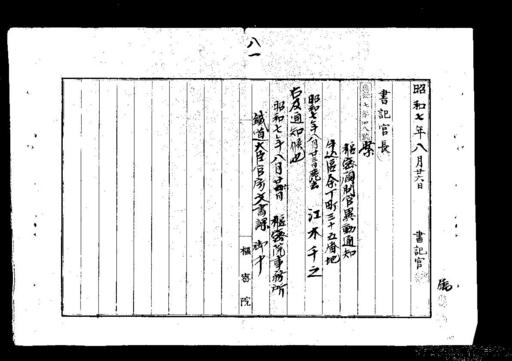 八一
昭和七年八月廿六日
書記官
属
書記官長
案
枢密顧問官異動通知
牛込区余丁町三十五番地
昭和七年八月廿三日薨去 江木千之
右及通知候也
昭和七年八月廿 日 枢密院事務所
鐵道大臣官房文書課 御中
樞密院